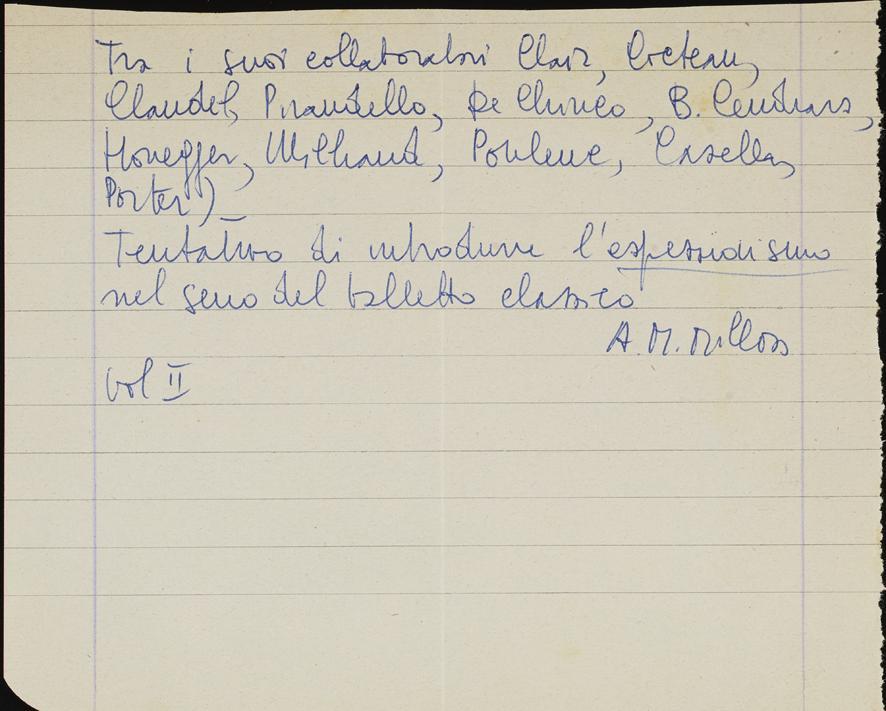 Tra i suoi collaboratori Clair, Cocteau,
Claudel, Pirandello, De Chirico, B. Cendrars,
Honegger, Milhaud, Poulenc, Casella,
Porter)_
Tentativo di introdurre l'espressionismo
nel seno del balletto classico
A. M. Milloss
vol II